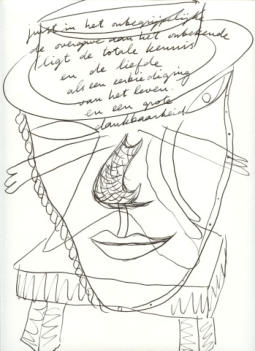 juist in het onbegrijpelijke
de overgave aan het onbekende
ligt de totale kennis
en de liefde
als een eerbiediging
van het leven
en een grote
dankbaarheid